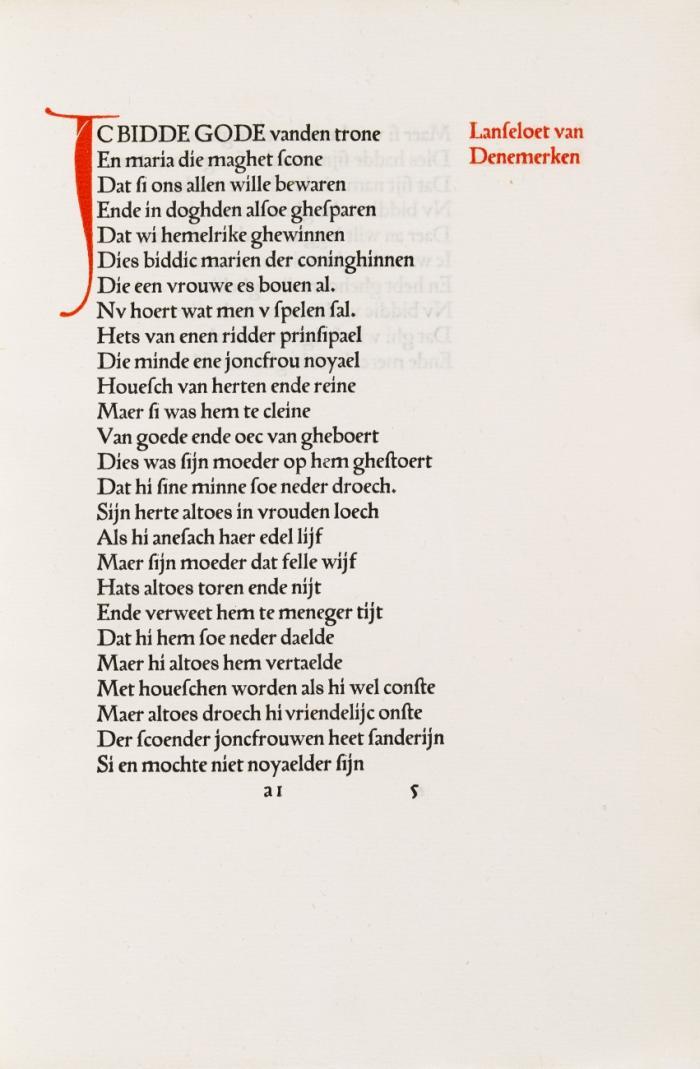 IC BIDDE GODE vanden trone
En maria die maghet ſcone
Dat ſi ons allen wille bewaren
Ende in doghden alſoe gheſparen
Dat wi hemelrike ghewinnen
Dies biddic marien der coninghinnen
Die een vrouwe es bouen al.
Nv hoert wat men v ſpelen ſal.
Hets van enen ridder prinſipael
Die minde ene joncfrou noyael
Houeſch van herten ende reine
Maer ſi was hem te cleine
Van goede ende oec van gheboert
Dies was ſijn moeder op hem gheſtoert
Dat hi ſine minne ſoe neder droech.
Sijn herte altoes in vrouden loech
Als hi aneſach haer edel lijf
Maer ſijn moeder dat felle wijf
Hats altoes toren ende nijt
Ende verweet hem te meneger tijt
Dat hi hem ſoe neder daelde
Maer hi altoes hem vertaelde
Met houeſchen worden als hi wel conſte
Maer altoes droech hi vriendelijc onſte
Der ſcoender joncfrouwen heet ſanderijn
Si en mochte niet noyaelder ſijn
a1 5
Lanſeloet van
Denemerken